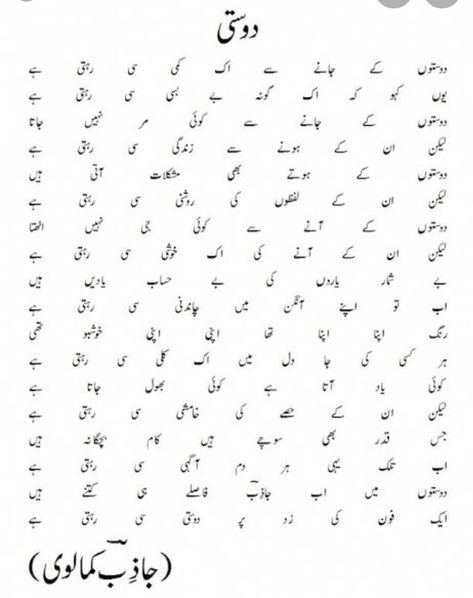 دوستی
دوستوں کے جانے سے اک کمی سی رہتی ہے
یوں کہو کہ اک گونہ بے بسی سی رہتی ہے
دوستوں کے جانے سے کوئی مر نہیں جاتا
لیکن ان کے ہونے سے زندگی سی رہتی ہے
دوستوں کے ہوتے بھی مشکلات آتی ہیں
لیکن ان کے لفظوں کی روشنی سی رہتی ہے
دوستوں کے آنے سے کوئی جی نہیں اٹھتا
لیکن ان کے آنے کی اک خوشی سی رہتی ہے
بے شمار یاروں کی بے حساب یادیں ہیں
اب تو اپنے آنگن میں چاندنی سی رہتی ہے
رنگ اپنا اپنا تھا اپنی اپنی خوشبو تھی
ہر کسی کی جا دل میں اک کلی سی رہتی ہے
کوئی یاد آتا ہے کوئی بھول جاتا ہے
لیکن ان کے حصے کی خامشی سی رہتی ہے
جس قدر بھی سوچے ہیں کام بچگانہ ہیں
اب تلک یہی ہر دم آگہی سی رہتی ہے
دوستوں میں اب جاذبؔ فاصلے ہی کتنے ہیں
ایک فون کی زد پر دوستی سی رہتی ہے
(جاذِبؔ کمالوی)